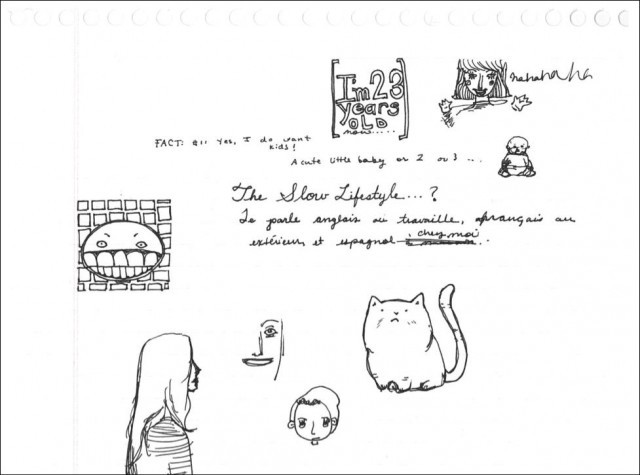 I'm 23
years
OLD
now.....
hahahaha
FACT: Yes, I do want
kids!
A cute little baby or 2 or 3 ...
The Slow Lifestyle...?
Je parle anglais au travaille, français au
extérieur et espagnol chez moi